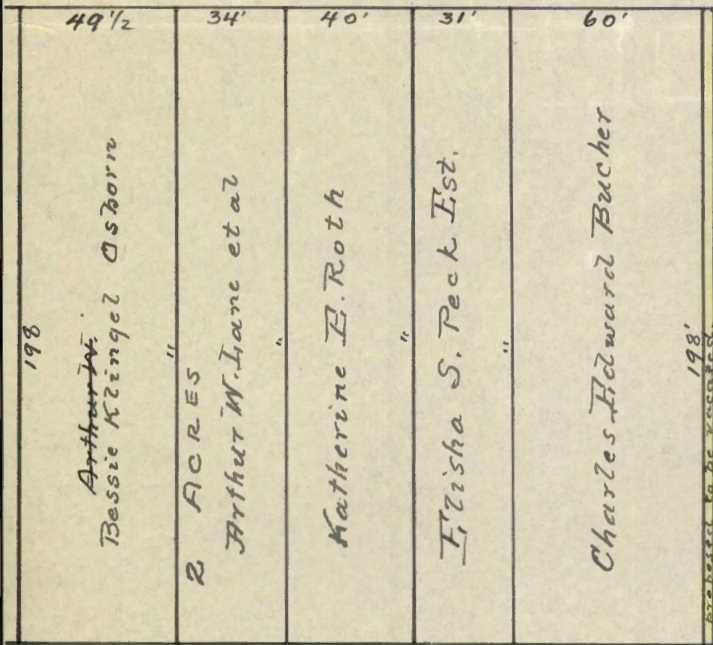 49 1/2
34'
40'
31'
60'
198
Arthur W.
Bessie Klingel Osborn
"
2 ACRES
Arthur W. Lane et al
"
Katherine E. Roth
"
Elisha S. Peck Est.
"
Charles Edward Bucher
198'
proposed to be vacated.